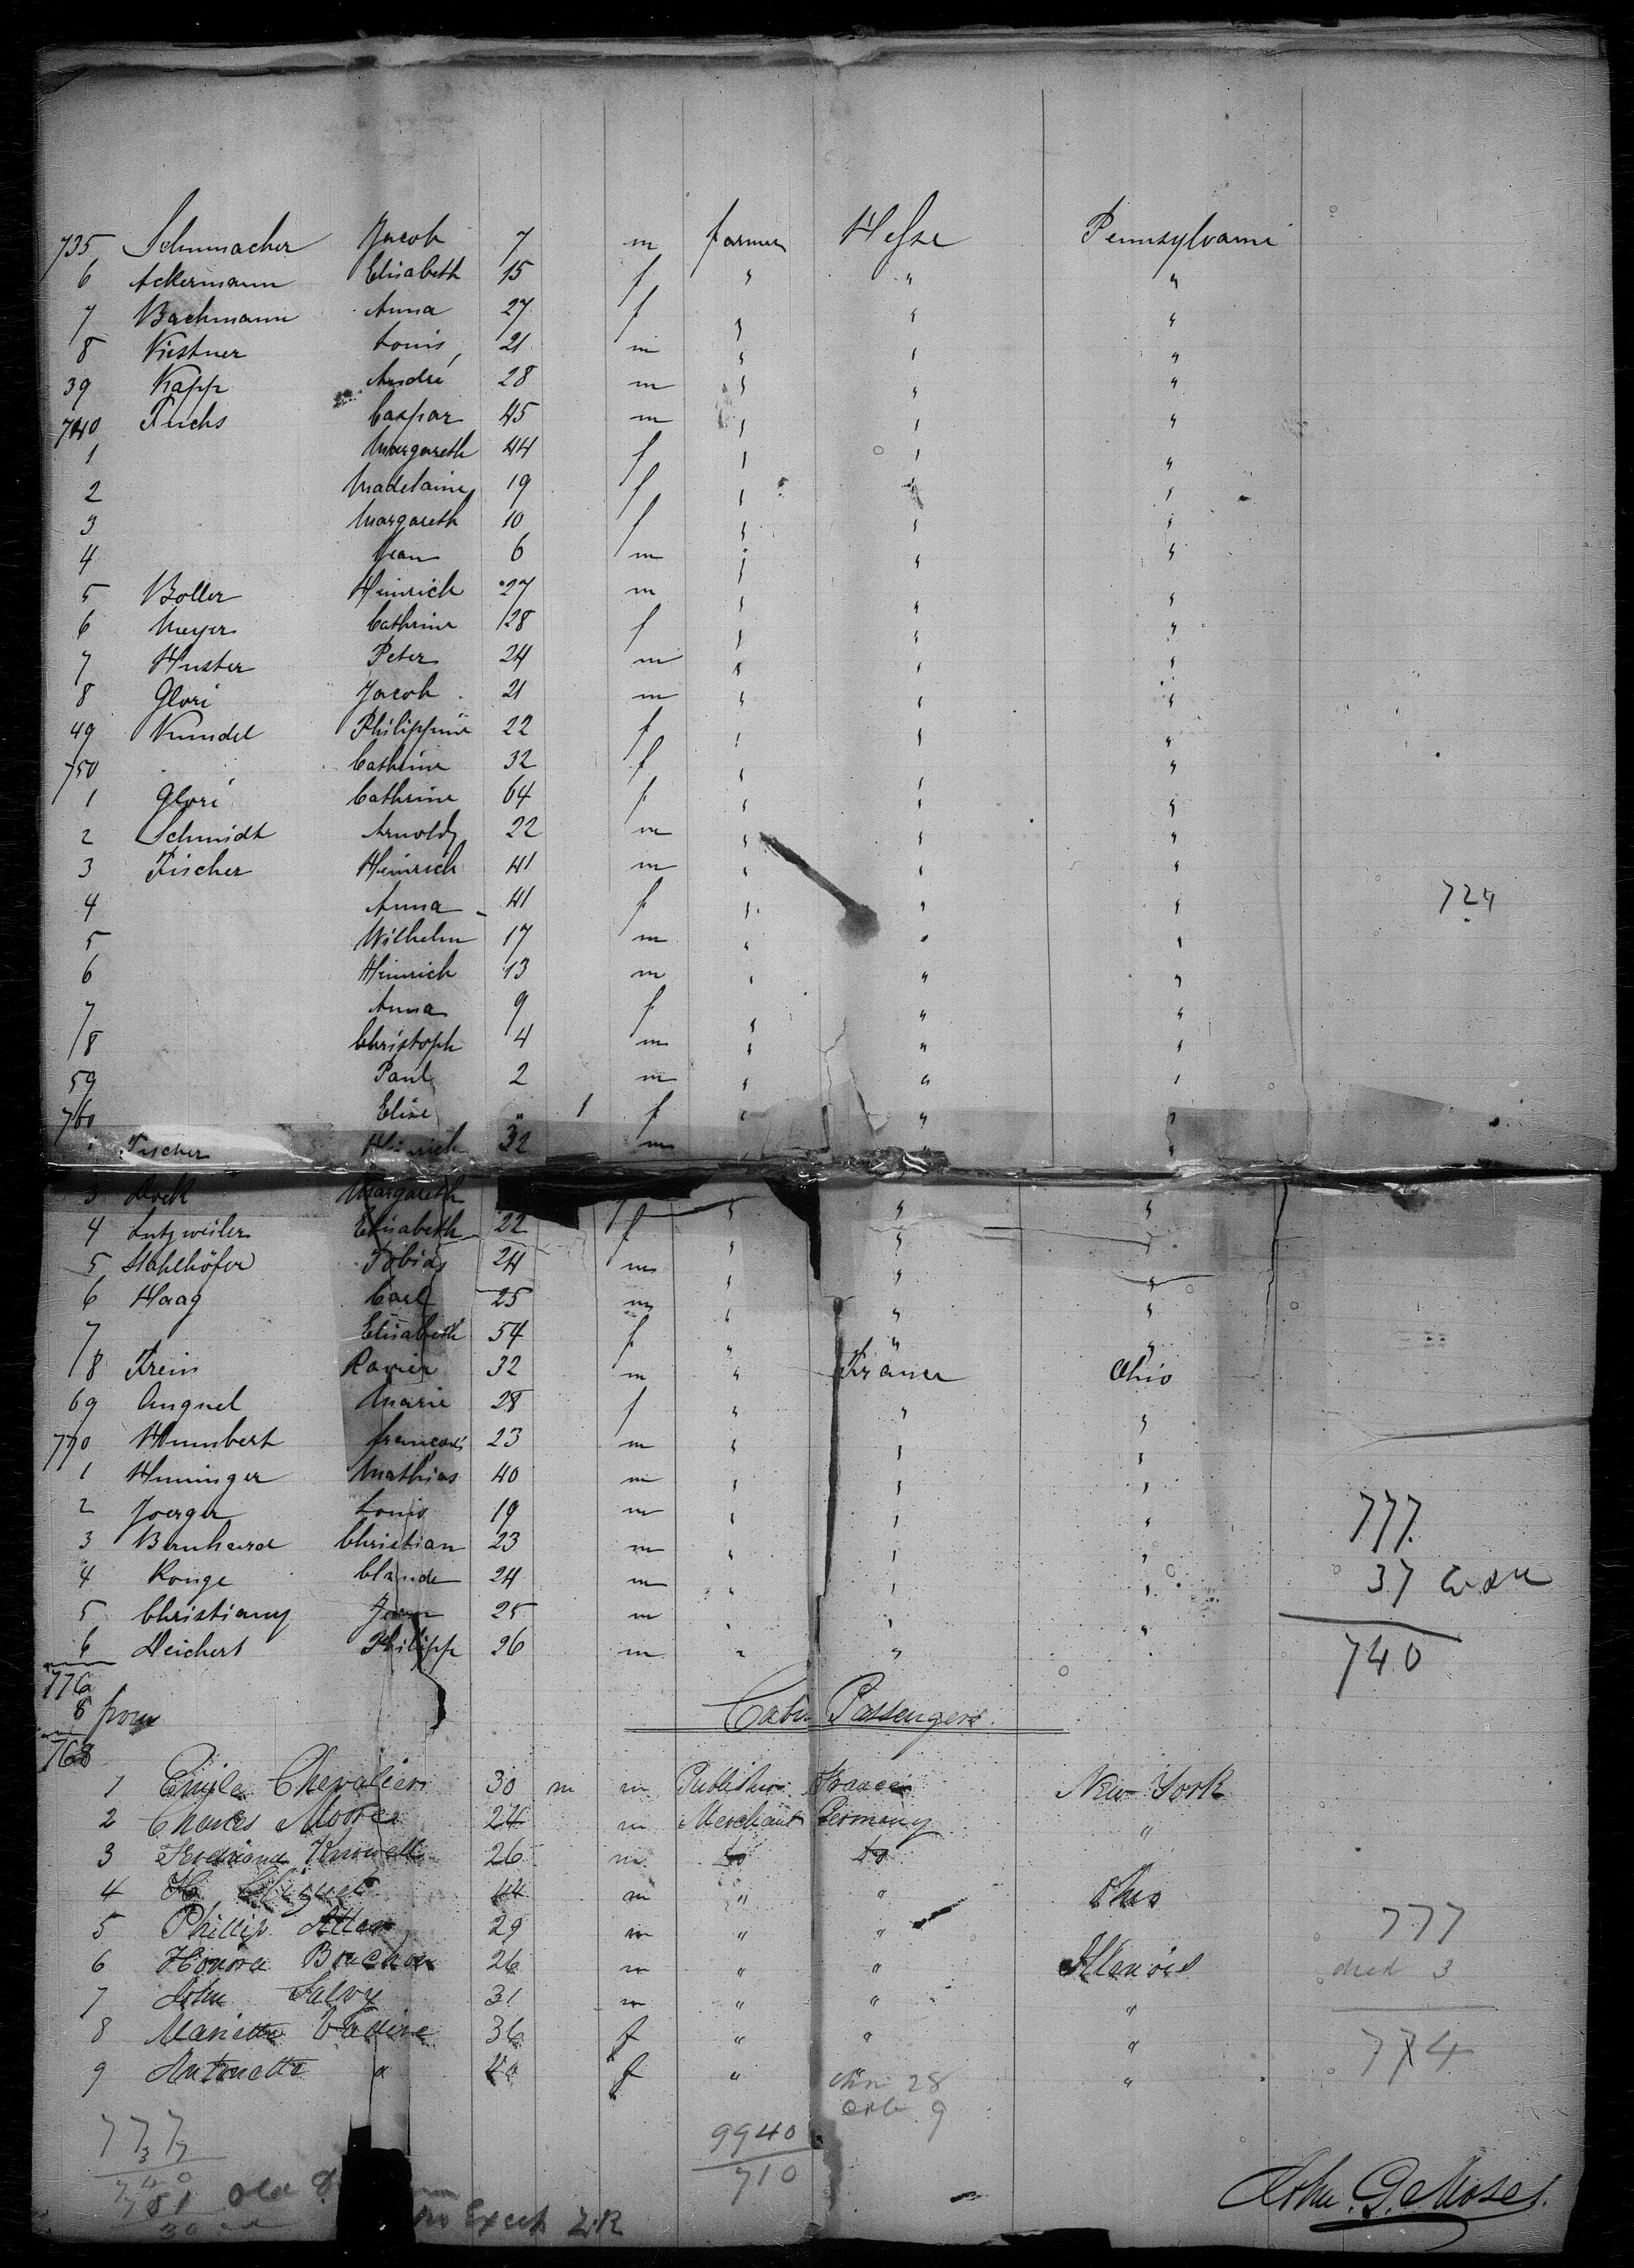 735 Schumacher Jacob 7 m farmer Hesse Pennsylvani
6 Ackermann Elisabeth 15 f " " "
7 Bachmann Anna 27 f " " "
8 Kiestner Louis 21 m " " "
39 Kapp André 28 m " " "
740 Fuchs Caspar 45 m " " "
1 Margareth 44 f " " "
2 Madelaine 19 f " " "
3 Margareth 10 f " " "
4 Jean 6 m " " "
5 Boller Heinrich 27 m " " "
6 Meyer Cathrine 28 f " " "
7 Huster Peter 24 m " " "
8 Glori Jacob 21 m " " "
49 Kundel Philippine 22 f " " "
750 Cathrine 32 f " " "
1 Glori Cathrine 64 f " " "
2 Schmidt Arnold 22 m " " "
3 Fischer Heinrich 41 m " " "
4 Anna 41 f " " " 724
5 Wilhelm 17 m " " "
6 Heinrich 13 m " " "
7 Anna 9 f " " "
8 Christoph 4 m " " "
59 Paul 2 m " " "
760 Elise " 1 f " " "
Fischer Heinrich 32 m " "
3 Dock Margareth f " " "
4 Lutzweiler Elisabeth 22 f " " "
5 Stahlhöfer Tobias 24 m " " "
6 Haag Carl 25 m " " "
7 Elisabeth 54 f " " "
8 Frein 32 m " France Ohio
69 Anguel Marie 28 f " " "
770 Humbert francois 23 m " " "
1 Huninger Mathias 40 m " " "
2 Joerger Louis 19 m " " " 777
3 Bernhard Christian 23 m " " "
4 Rouge Claude 24 m " " " 37
5 Christiany 25 m " " "
6 Deichert Philipp 26 m " " " 740
776
8 from
Cabin Passengers
768
1 Emile Chevalier 30 m m Publisher France New York
2 Charles Moore 24 m Merchant Germany "
3 Ferdinand 26 m Do Do
4 44 m " " Ohio
5 Phillip 29 m " " 777
6 26 m " " Illanois
died 3
7 John Salvy 31 m " " "
8 36 f " " " 774
9 Antonette " 40 f " " "
28
9
777
37
740
9940
710
751
John. G. Moses.
Exect